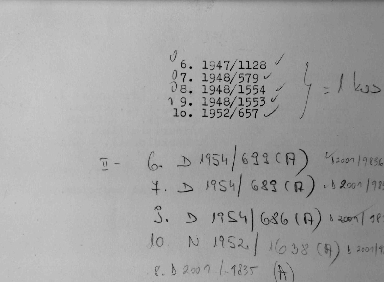 6. 1947/1128 ✓
7. 1948/579 ✓
8. 1948/1554 ✓
9. 1948/1553 ✓
10. 1952/657 ✓
= 1 kos
II - 6. D 1954/699 (A)
7. D 1954/689 (A) D 2007/983
9. D 1954/686 (A) D 2007/983
10. N 1952/1638 (A)
8. D 2007/9835 (A)